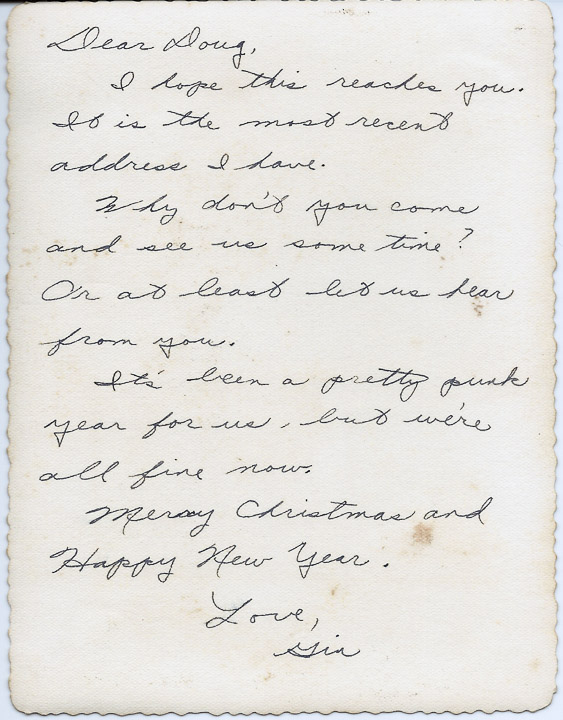 Dear Doug,
I hope this reaches you.
It is the most recent
address I have.
Why don't you come
and see us some time?
Or at least let us hear
from you.
It's been a pretty punk
year for us, but we're
all fine now.
Merry Christmas and
Happy New Year.
Love,
Gin